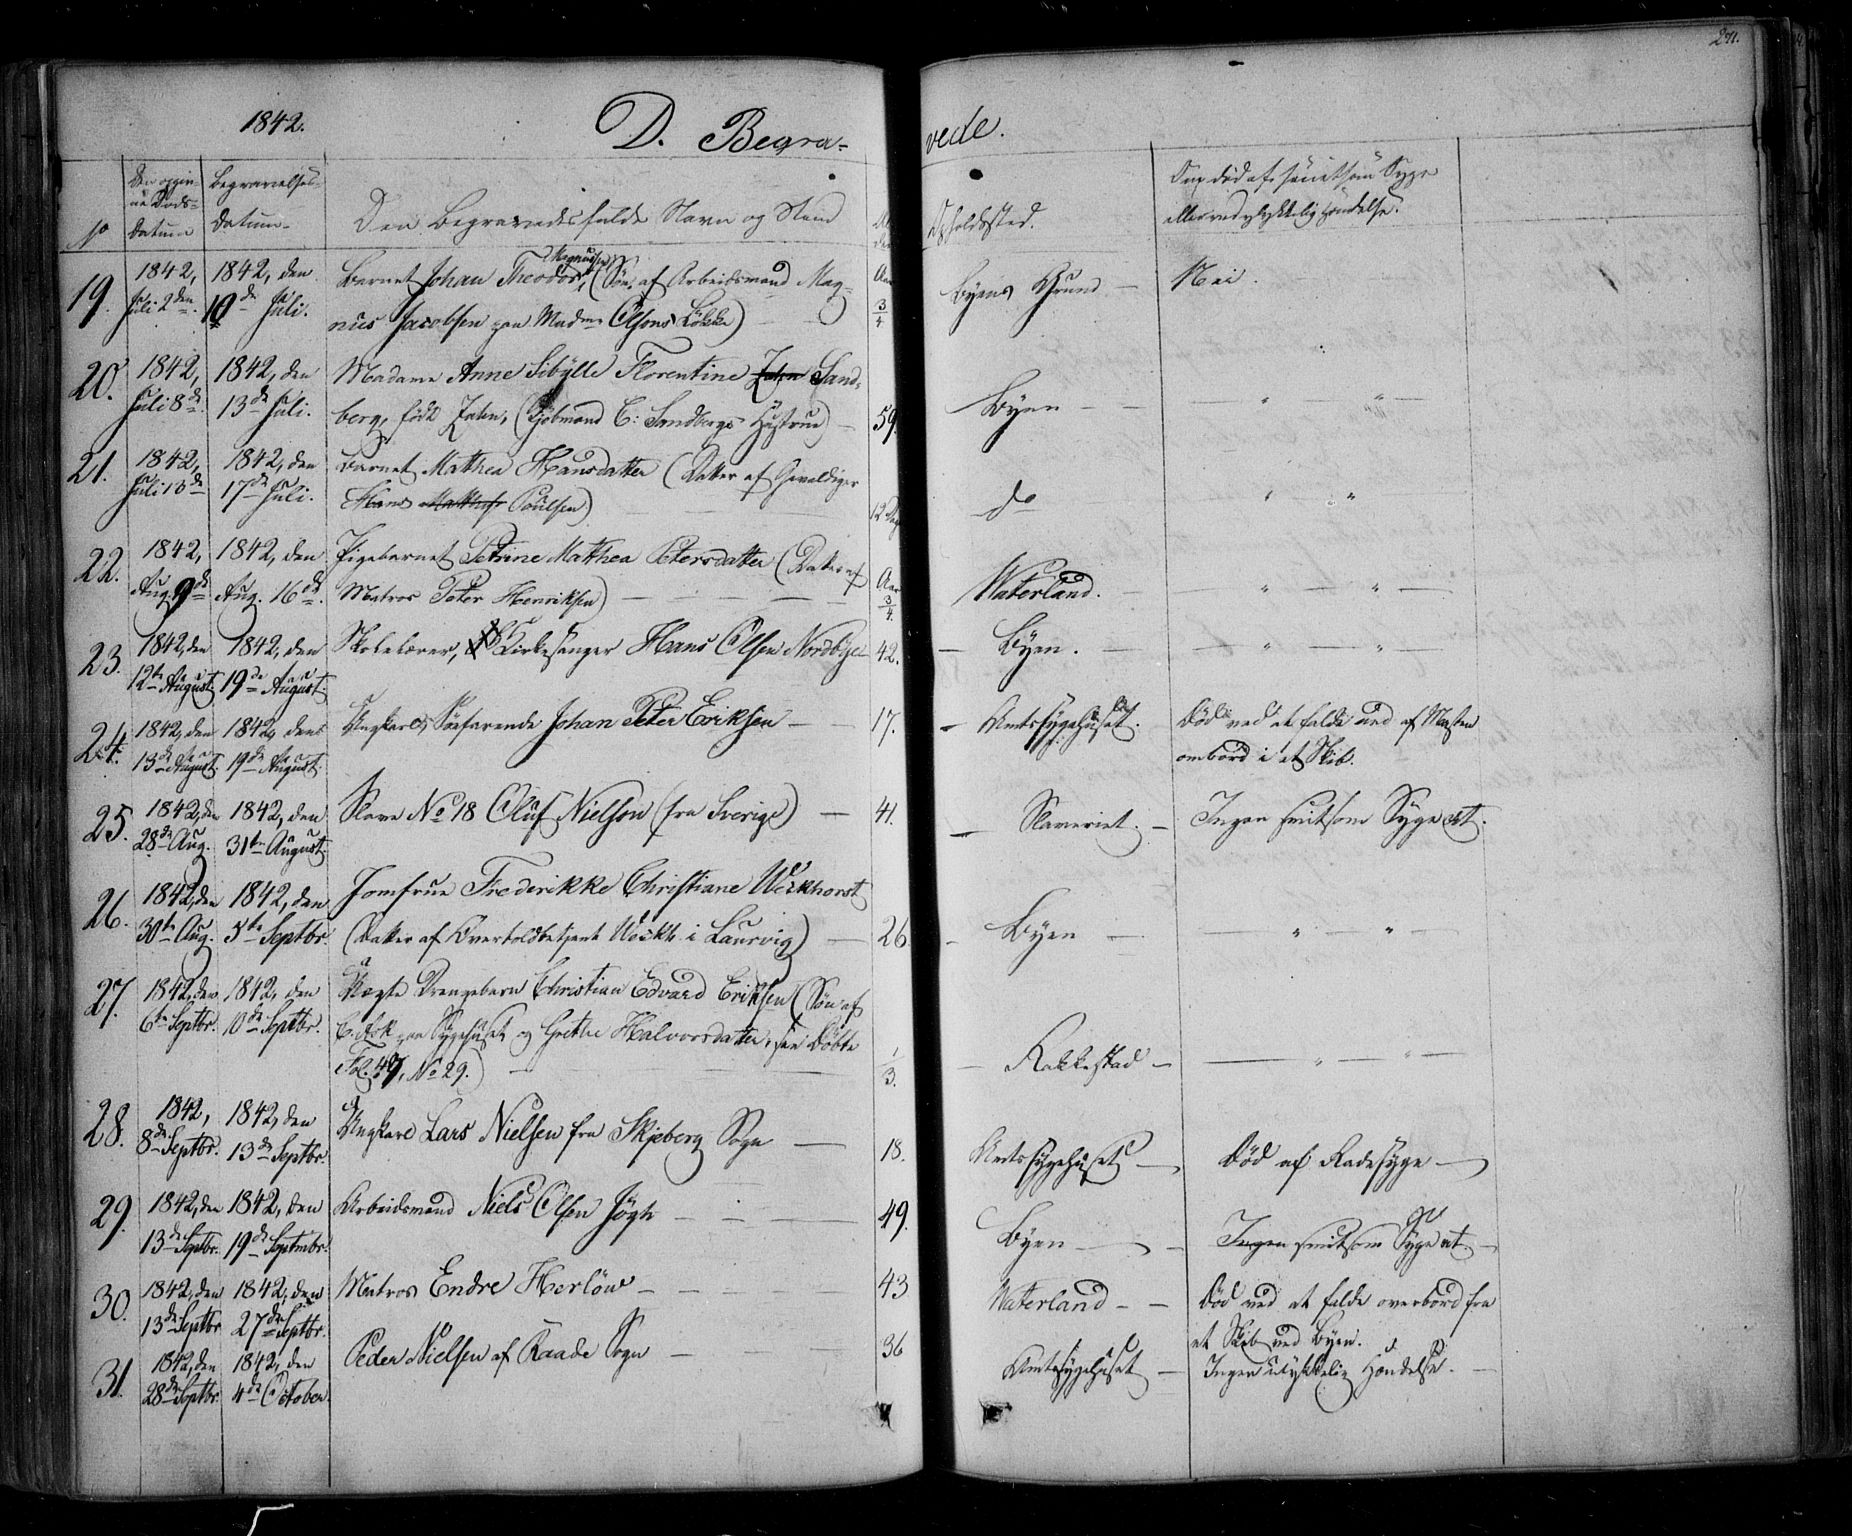 271.
1842. D. Begra- vede.
No
Den opgiv-
ne Døds-
Datum
Begravelses-
Datum.
Den Begravedes fulde Navn og Stand
Al
der
Opholdssted.
Om død af smitsom Syge
eller ved ulykkelig Hændelse.
19. 1842, 1842, den Barnet Johan Theodor Magnusen, (Søn af Arbeidsmand Mag- Aar Byens Grund — Nei.
Juli 2den. 10de Juli. nus Jacobsen paa Madme Olsons Løkke) 3/4
20. 1842, 1842, den Madame Anne Sibÿlle Florentine Zahn Sand-
Juli 8de. 13de Juli. berg, født Zahn, (Kjøbmand C: Sandbergs Hustrue) — 59. Byen — — — " — " —
21. 1842, 1842, den Barnet Mathea Hansdatter (Datter af Gevaldiger
Juli 13de 17de Juli. Hans Poulsen) 12 Dage do — " — " —
22. 1842, 1842, den Pigebarnet Petrine Mathea Petersdatter (Datter af Aar
Aug. 9de Aug. 16de. Matros Peter Henriksen) — 3/4. Waterland. — " — " —
23. 1842, den 1842, den Skolelærer, Kirkesanger Hans Olsen Nordbye 42. — Byen. — " — " —
12te August. 19de August.
24. 1842, den 1842, den Ungkarl, Søefarende Johan Peter Eriksen — 17. — Amtssygehuset. Død ved at falde ned af Masten
13de August. 19de August. ombord i et Skib.
25. 1842, den 1842, den Slave No 18 Oluf Nielson (fra Sverige) — 41. — Slaveriet. — Ingen smitsom Syge &t.
28de Aug. 31te August.
26. 1842, den 1842, den Jomfrue Frederikke Christiane Weckhorst
30te Aug. 5te Septbr. (Datter af Overtoldbetjent Weckh. i Laurvig) — 26 — Byen — — " — " —
27. 1842, den 1842, den Uægte Drengebarn Christian Edvard Eriksen (Søn af
6te Septbr. 10de Septbr. paa Sygehuset og Grethe Halvorsdatter, see Døbte
Fol. 49, No 29.) — 1/3. — Rakkestad — — " — " —
28. 1842, 1842, den Ungkarl Lars Nielsen fra Skjeberg Sogn — 18. Amtssygehuset — Død af Radesyge —
8de Septbr. 13de Septbr.
29. 1842, den 1842, den Arbeidsmand Niels Olsen — 49. Byen — — Ingen smitsom Syge &t. —
13de Septbr. 19de Septembr.
30. 1842, den 1842, den Matros Endre Herlöw — 43 Waterland — — Død ved at falde overbord fra
13de Septbr 27de Septbr. et Skib ved Byen.
31. 1842, den 1842, den Peder Nielsen af Raade Sogn — 36 Amtssygehuset — Ingen ulykkelig Hændelse. —
28de Septbr. 4de October.